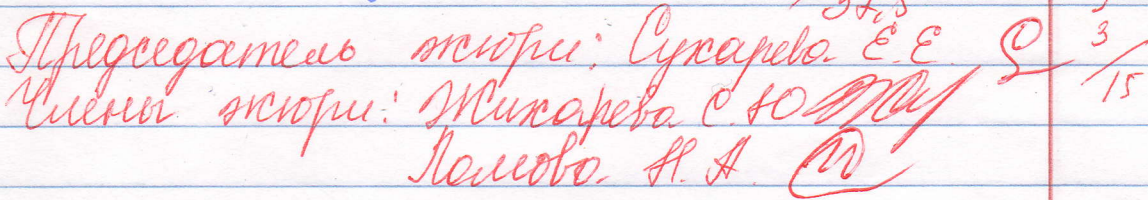 Председатель жюри: Сухарева Е.Е.
Члены жюри: Жихарева С.Ю
Ломова Н.А.
3/15